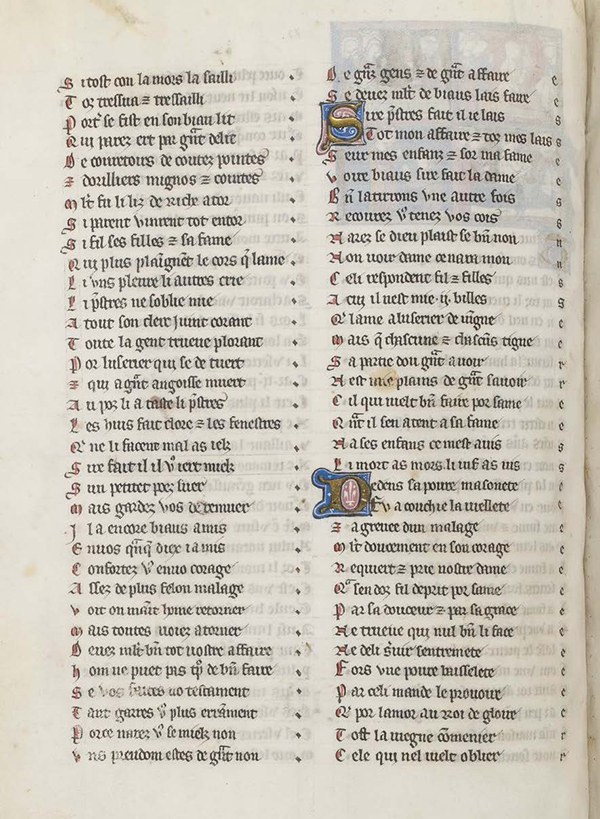 S i tost con la mors la sailli
T oz tressua ⁊ tressailli
P orte se fist en son biau lit
Q ui parez ert par gñt delit
D e couvretoirs de coutez pointes
⁊ dorilliers mignos ⁊ cointes
M lt fu li liz de riche ator
S i parent vinrent tot entor
S i fil ses filles ⁊ sa fame
Q ui plus plaignẽt le cors q̃ lame
L i vns pleure li autres crie
L i p̃stres ne soblie mie
A tout son clerc i vint corant
T oute la gent trueve plorant
P or luserier qui se devert
⁊ qui a gñt angoisse muert
A u poz li a taste li p̃stres
L es huis fait clore ⁊ les fenestres
Q̃ ne li facent mal as ielz
S ire fait il il v̾ iert mielz
S un petitet poez suer
M ais gardez vos de remuer
I l a encore biaus amis
E nuos q̃nq̃ diex i a mis
C onfortez v̾ en uo corage
A ssez de plus felon malage
V oit on maĩt home retorner
M ais toutes uoies atorner
D evez mlt bñ tot uostre affaire
h om ne puet pas tp̃ de bñ faire
S e vos uo testament
T ant garrez v̾ plus errãment
P orce narez v̾ se mielz non
V ns preudom estes de gñt non
D e gñz gens ⁊ de gñt affaire
S e devez mlt de biaus lais faire
Sire p̃stres fait il ie lais
Tot mon affaire ⁊ toz mes lais
S eur mes enfanz ⁊ sor ma fame
V oire biaus sire fait la dame
B ñ latirons vne autre fois
R ecovrez v̾ tenez vos cois
N arez se dieu plaist se bñ non
N on voir dame ce nara mon
C eli respondent fil ⁊ filles
A cui il nest mie .ij. billes
Q̃ lame a luserier deviẽgne
M ais q̃ chascune ⁊ chascũs tiegne
S a partie dou gñt avoir
N est mie plains de gñt savoir
C il qui uuelt bñ faire por same
Q̃nt il sen atent a sa fame
N a ses enfans ce mest auis
L i mort as mors li uif as uis
Dedens sa poure masonete
Fu acouchie la viellete
⁊ agreuee dun malage
M lt doucement en son corage
R equiert ⁊ prie nostre dame
Q̃ sen doz fil deprit por same
P ar sa douceur ⁊ par sa grace
N e trueue qui nul bñ li face
N e deli seruir sentremete
F ors vne poure baisselete
P ar celi mande le provoire
Q̃ por lamor au roi de gloire
T ost la viegne cõmenier
C ele qui nel uuelt oblier